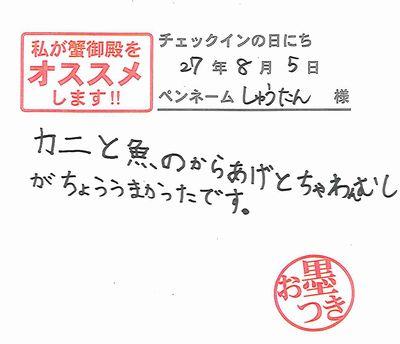 私が蟹御殿を
オススメ
します!!
チェックインの日にち
27年8月5日
ペンネーム しゅうたん 様
カニと魚のからあげとちゃわんむし
がちょううまかったです。
お墨つき